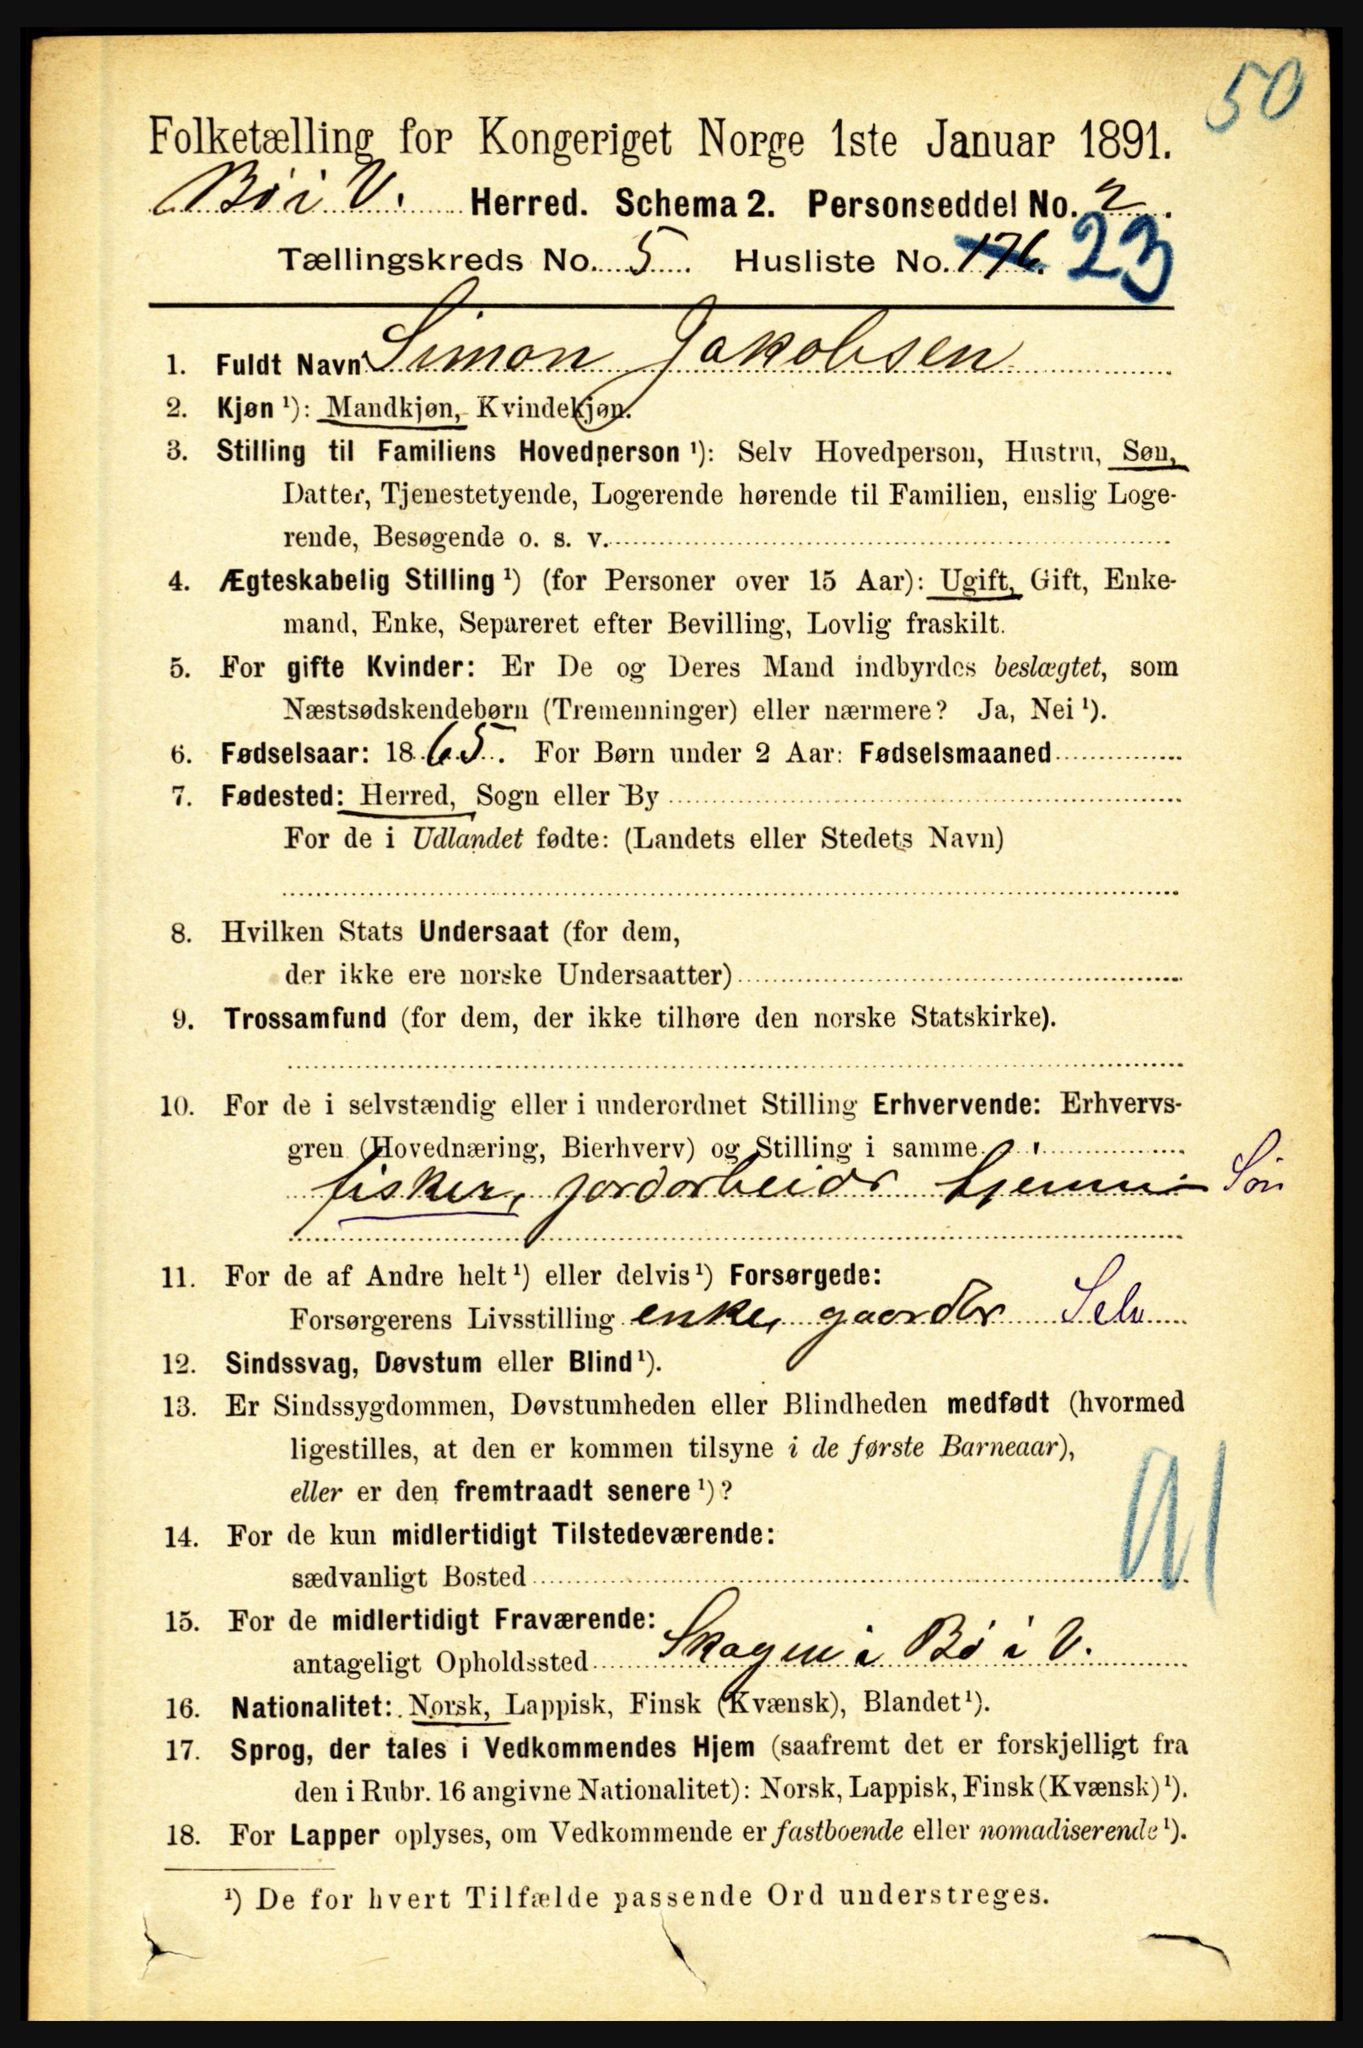 50
Folketælling for Kongeriget Norge 1ste Januar 1891.
Bø i V. Herred. Schema 2. Personseddel No. 2.
Tællingskreds No. 5. Husliste No. 176. 23
1. Fuldt Navn Simon Jakobsen
2. Kjøn ¹): Mandkjøn, Kvindekjøn.
3. Stilling til Familiens Hovedperson ¹): Selv Hovedperson, Hustru, Søn,
Datter, Tjenestetyende, Logerende hørende til Familien, enslig Loge-
rende, Besøgende o. s. v.
4. Ægteskabelig Stilling ¹) (for Personer over 15 Aar): Ugift, Gift, Enke-
mand, Enke, Separeret efter Bevilling, Lovlig fraskilt.
5. For gifte Kvinder: Er De og Deres Mand indbyrdes beslægtet, som
Næstsødskendebørn (Tremenninger) eller nærmere? Ja, Nei ¹).
6. Fødselsaar: 1865. For Børn under 2 Aar: Fødselsmaaned
7. Fødested: Herred, Sogn eller By
For de i Udlandet fødte: (Landets eller Stedets Navn)
8. Hvilken Stats Undersaat (for dem,
der ikke ere norske Undersaatter)
9. Trossamfund (for dem, der ikke tilhøre den norske Statskirke).
10. For de i selvstændig eller i underordnet Stilling Erhvervende: Erhvervs-
gren (Hovednæring, Bierhverv) og Stilling i samme
fisker, jordarbeidr hjemme Søn
11. For de af Andre helt ¹) eller delvis ¹) Forsørgede:
Forsørgerens Livsstilling enke, gaardbr Selv
12. Sindssvag, Døvstum eller Blind ¹).
13. Er Sindssygdommen, Døvstumheden eller Blindheden medfødt (hvormed
ligestilles, at den er kommen tilsyne i de første Barneaar),
eller er den fremtraadt senere ¹)?
14. For de kun midlertidigt Tilstedeværende:
sædvanligt Bosted
15. For de midlertidigt Fraværende:
antageligt Opholdssted Skagen i Bø i V.
16. Nationalitet: Norsk, Lappisk, Finsk (Kvænsk), Blandet ¹).
17. Sprog, der tales i Vedkommendes Hjem (saafremt det er forskjelligt fra
den i Rubr. 16 angivne Nationalitet): Norsk, Lappisk, Finsk (Kvænsk) ¹).
18. For Lapper oplyses, om Vedkommende er fastboende eller nomadiserende ¹).
¹) De for hvert Tilfælde passende Ord understreges.